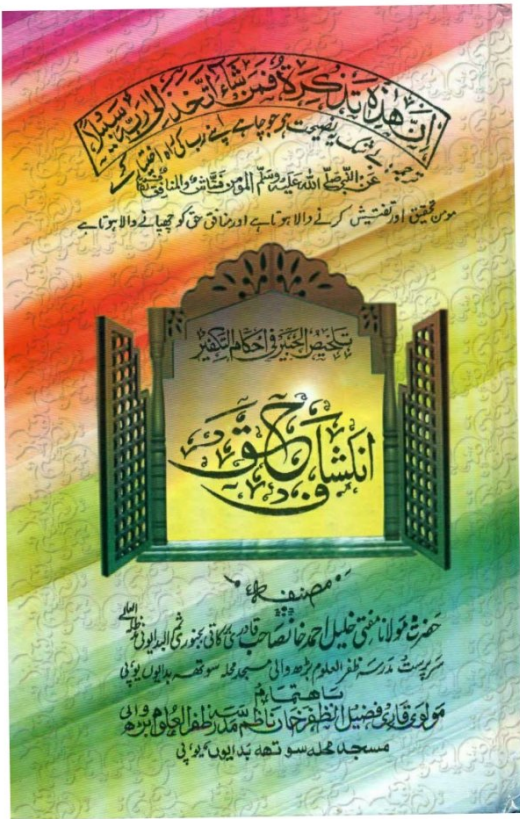 ان هذه تذكرة فمن شاء اتخذ الى ربه سبيلا
ترجمہ: بے شک یہ نصیحت ہے جو چاہے اپنے رب کی راہ اختیار کرے
عن النبی صلی اللہ علیہ وسلم المؤمن فتاش والمنافق
مومن تحقیق اور تفتیش کرنے والا ہوتا ہے اور منافق حق کو چھپانے والا ہوتا ہے
تلخیص الخبیر فی احکام التکفیر
انکشاف حق
مصنفہ
حضرت مولانا مفتی خلیل احمد خانصاحب قادری برکاتی بجنوری ثم البدایونی مدظلہ العالی
سرپرست مدرسہ ظفر العلوم بڑھ والی مسجد محلہ سوتھہ بدایوں یوپی
باہتمام
مولوی قاری فضیل الظفر خان ناظم مدرسہ ظفر العلوم بڑھ والی
مسجد محلہ سوتھہ بدایوں یوپی